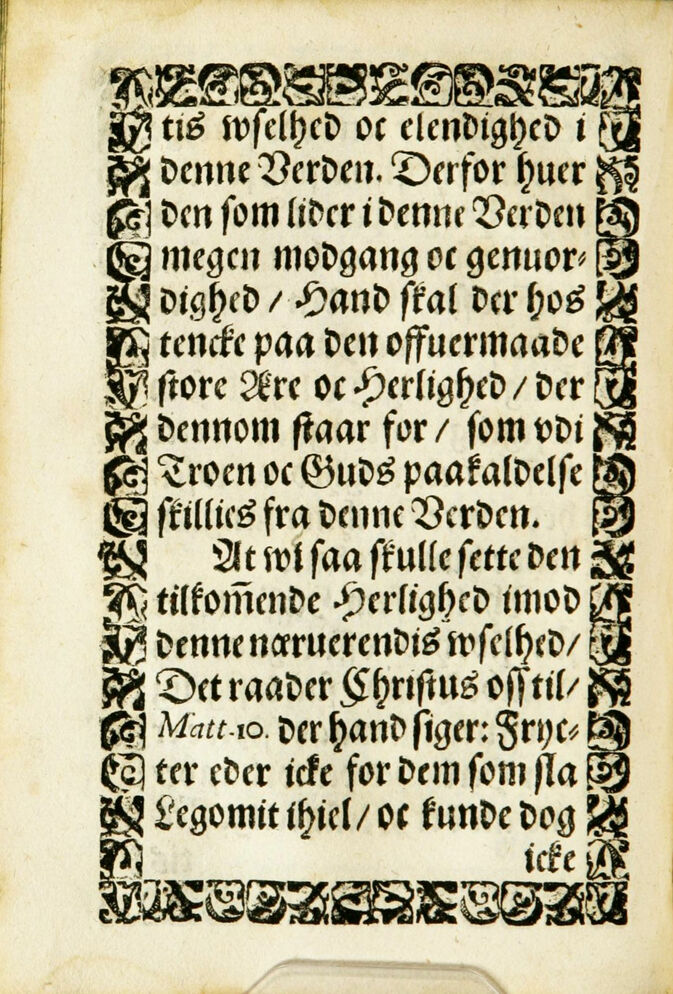 tis wselhed oc elendighed i
denne Verden. Derfor huer
den som lider i denne Verden
megen modgang oc genuor⸗
dighed / Hand skal der hos
tencke paa den offuermaade
store Ære oc Herlighed / der
dennom staar for / som vdi
Troen oc Guds paakaldelse
skillies fra denne Verden.
At wi saa skulle sette den
tilkom̄ende Herlighed imod
denne næruerendis wselhed/
Det raader Christus oss til/
Matt.10. der hand siger: Fryc⸗
ter eder icke for dem som sla
Legomit ihiel/ oc kunde dog
icke